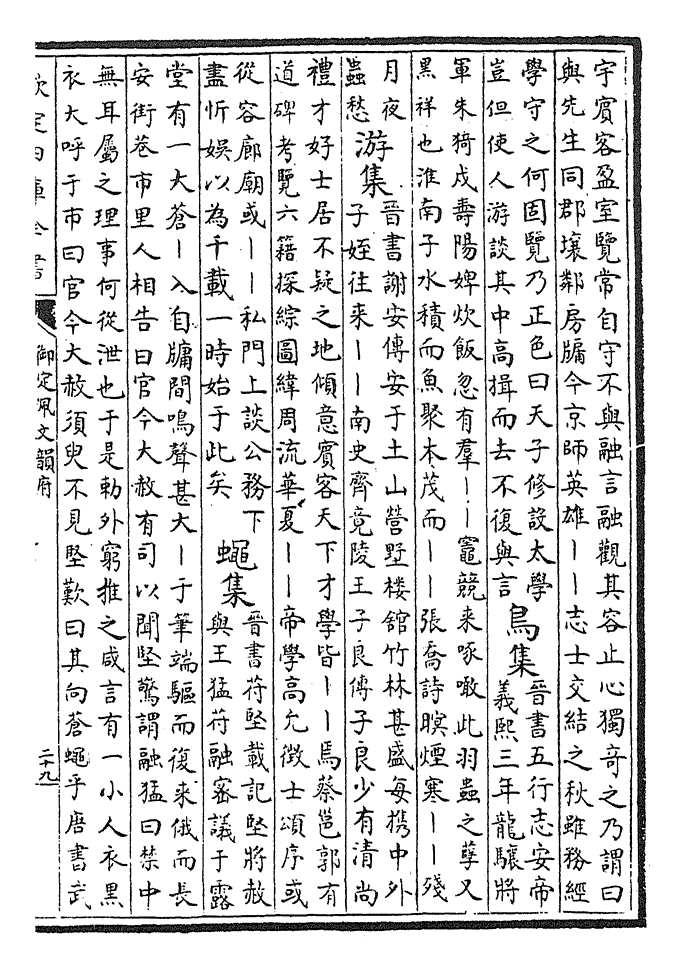 宇賓客盈室覽常自守不與融言融觀其容止心獨奇之乃謂曰
與先生同郡壤鄰房牖今京師英雄丨丨志士交結之秋雖務經
學守之何固覽乃正色曰天子修設太學
豈但使人游談其中高揖而去不復與言
烏集
晉書五行志安帝
義熙三年龍驤將
軍朱猗戍壽陽婢炊飯忽有羣丨丨竈競来啄噉此羽蟲之孽又
黑祥也淮南子水積而魚聚木茂而丨丨張喬詩暝煙寒丨丨殘
月夜
蟲愁
游集
晉書謝安傳安于土山營墅楼舘竹林甚盛每携中外
子姪往来丨丨南史齊竟陵王子良傳子良少有清尚
禮才好士居不疑之地傾意賓客天下才學皆丨丨焉蔡邕郭有
道碑考覽六籍探綜圖緯周流華夏丨丨帝學高允徴士頌序或
從容廊廟或丨丨私門上談公務下
盡忻娱以為千載一時始于此矣
蠅集
晉書苻堅載記堅將赦
與王猛苻融密議于露
堂有一大蒼丨入自牖間鳴聲甚大丨于筆端驅而復来俄而長
安街巷市里人相告曰官今大赦有司以聞堅驚謂融猛曰禁中
無耳屬之理事何從泄也于是勅外窮推之咸言有一小人衣黑
衣大呼于市曰官今大赦須臾不見堅歎曰其向蒼蠅乎唐書武
欽定四庫全書
御定佩文韻府
二十九